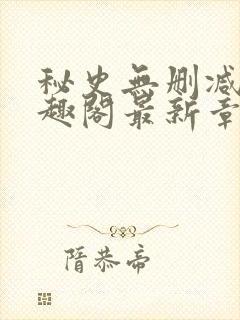 秘史無删减
趣閣最新章
隋恭帝